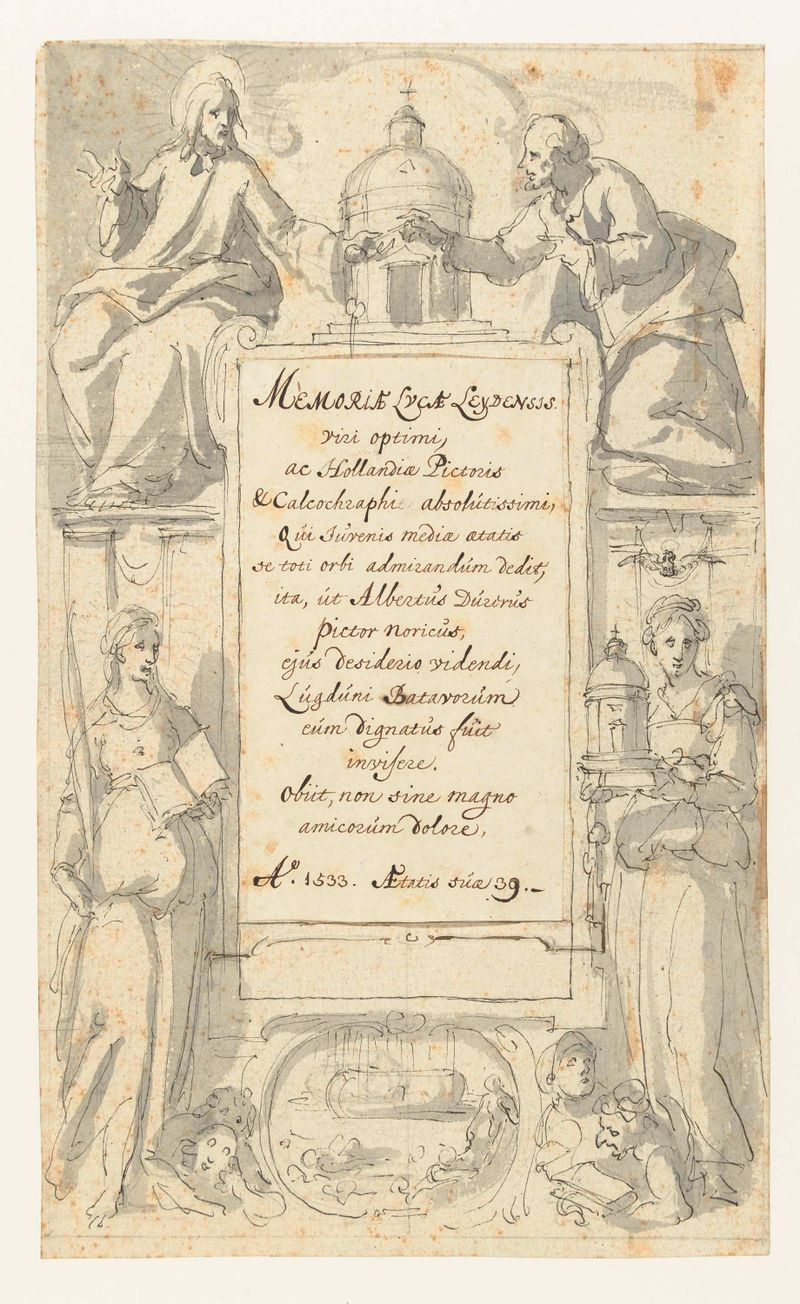 MEMORIÆ LVCÆ LEYDENSIS.
viri optimi,
ac Hollandiæ Pictoris
& Calcochraphi absolútissimi,
Qúi Iúvenis mediæ ætatis
se toti orbi admirandúm dedit,
ita, út Albertús Dúrerús
pictor noricús,
ejús desiderio videndi,
Lúgdúni Batavorúm
eúm dignatús fúit
invisere.
Obiit, non sine magno
amicorúm dolore,
Aº. 1533. Ætatis súæ 39.-